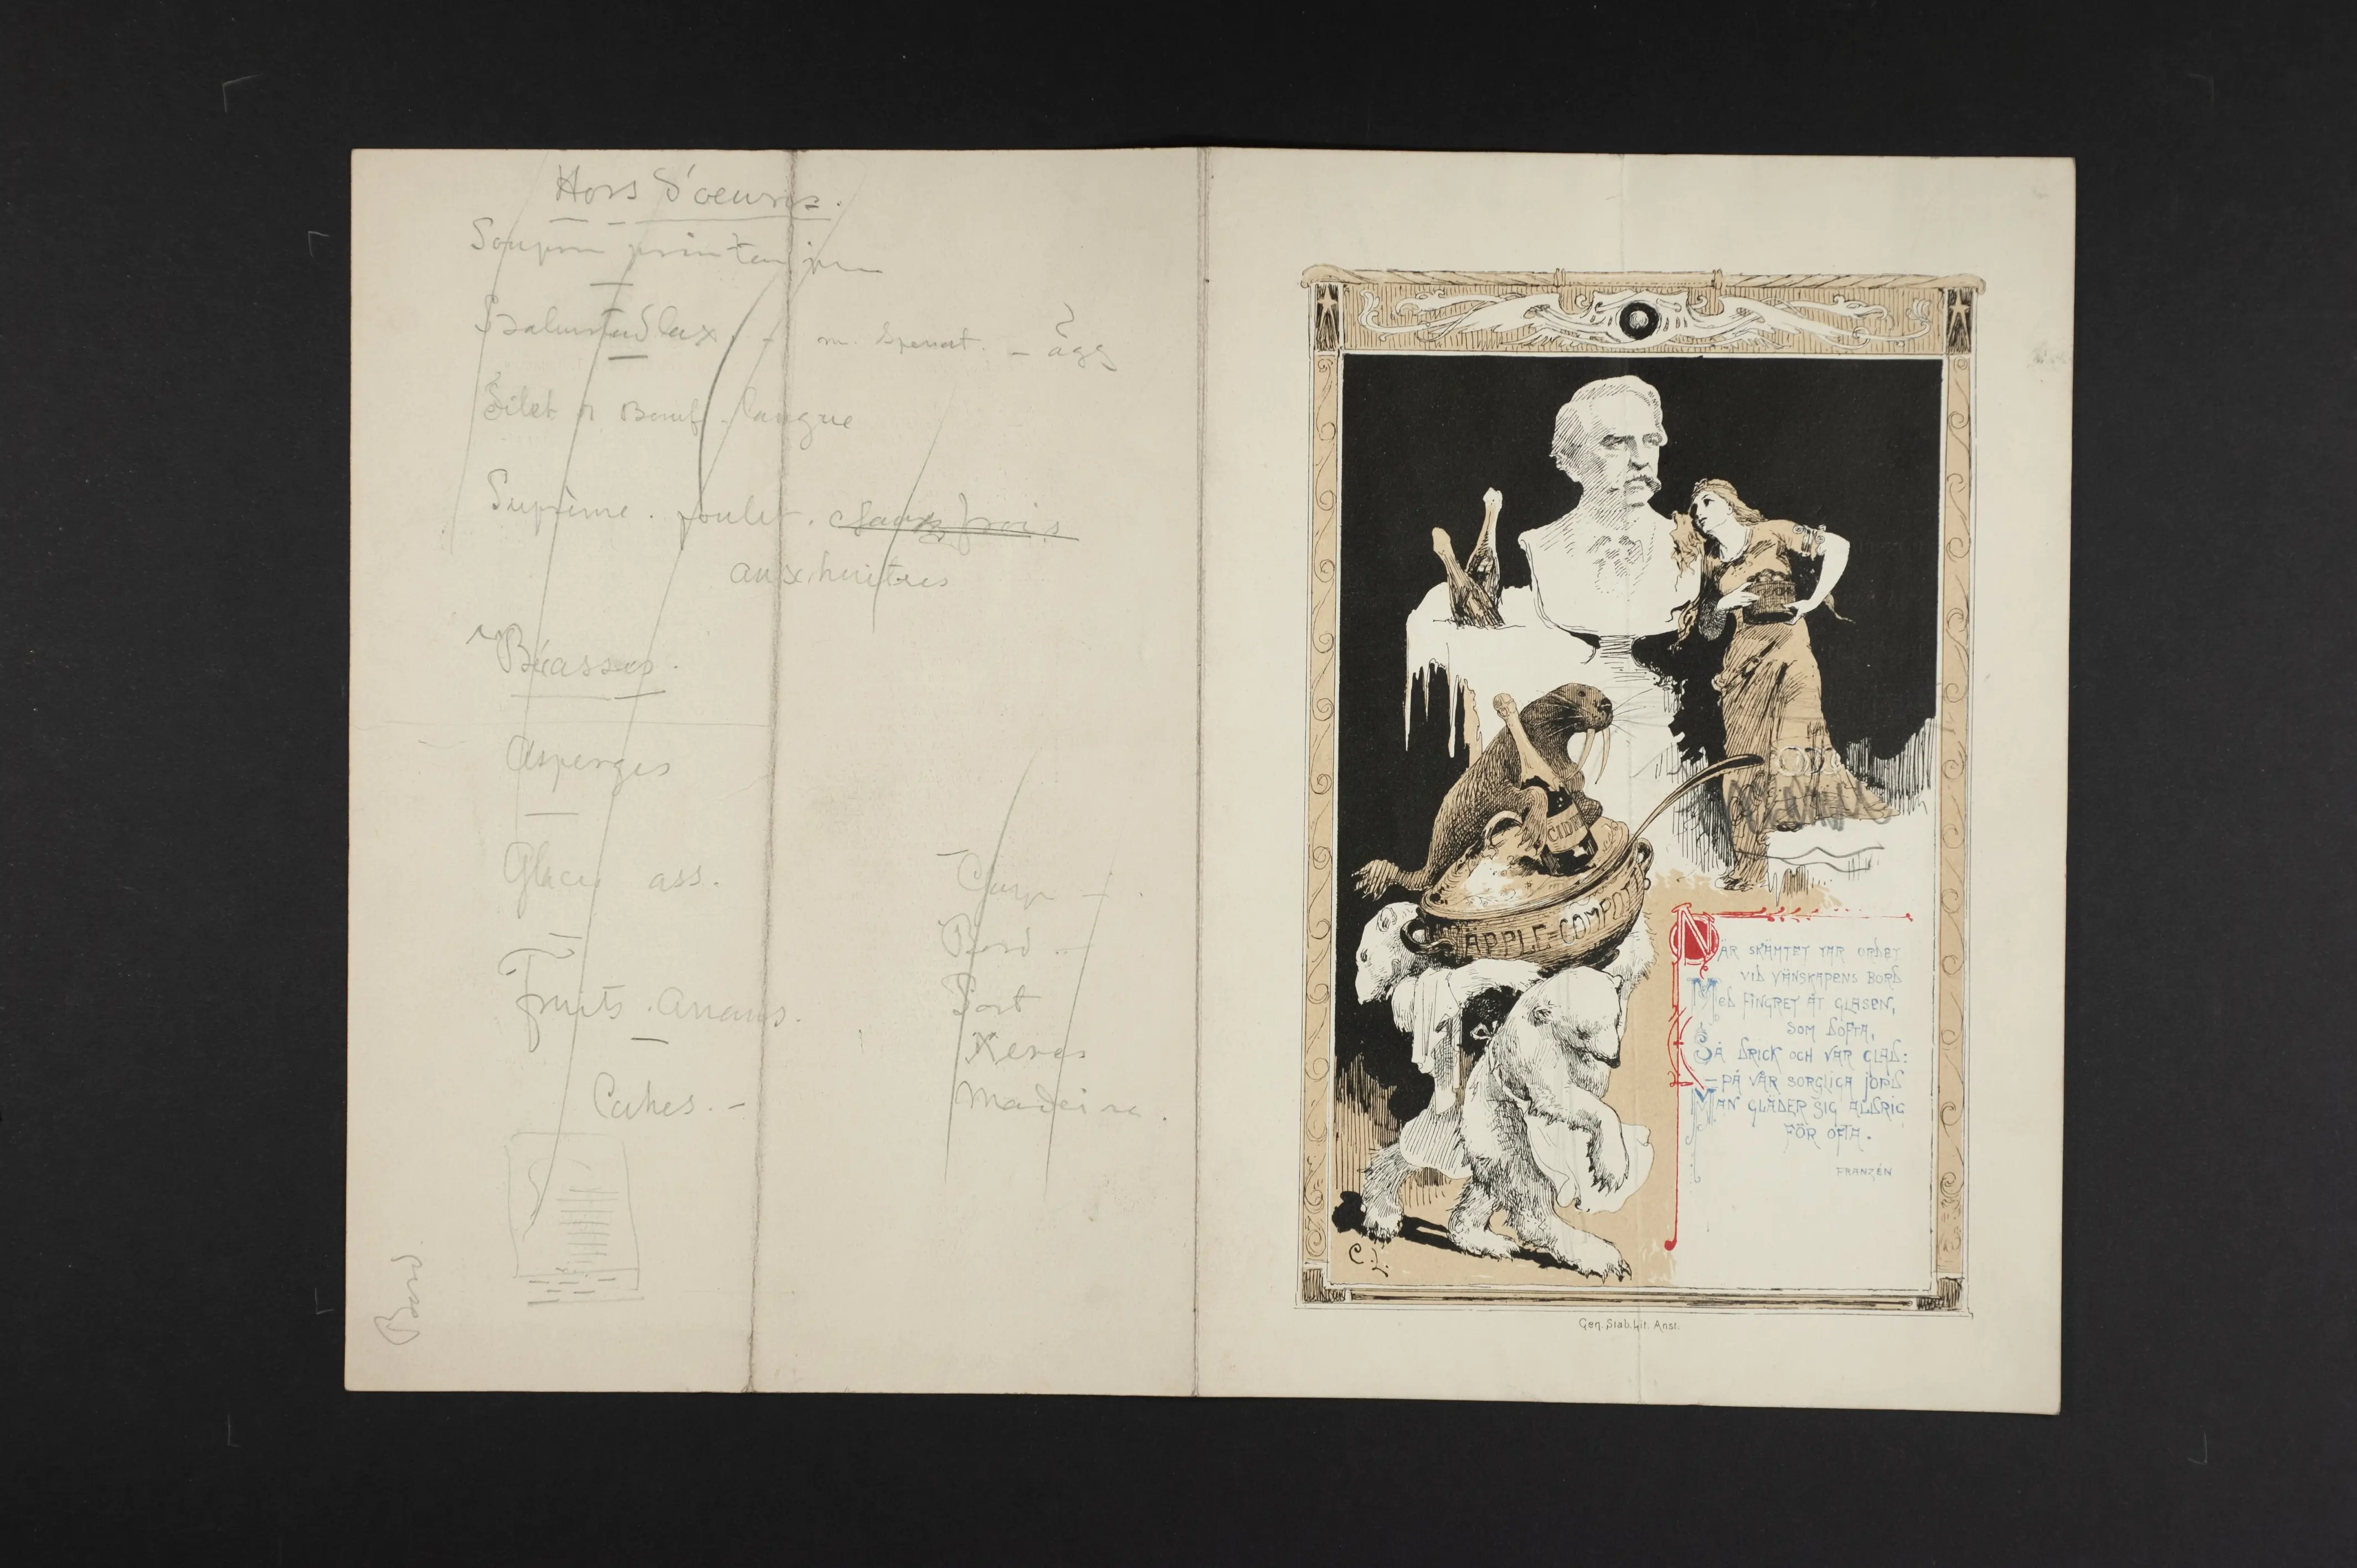 Hors d'oeuvres.
Halmstad lax. - m. Spenat. - ägg
Filet d Boeuf. langue
Suprême. poulet. chaux frois
aux huitres
Bécasses.
Asperges
Glaces ass.
Fruits. Ananas.
Cakes. -
Port
Xeres
Madeira.
CIDER
ÄPPLE=COMPOTT
NÄR SKÄMTET TAR ORDET
VID VÄNSKAPENS BORD
MED FINGRET ÅT GLASEN,
SOM DOFTA,
SÅ DRICK OCH VAR GLAD:
- PÅ VÅR SORGLIGA JORD
MAN GLÄDER SIG ALDRIG
FÖR OFTA.
FRANZÉN
C.L.
Gen. Stab. Lit. Anst.